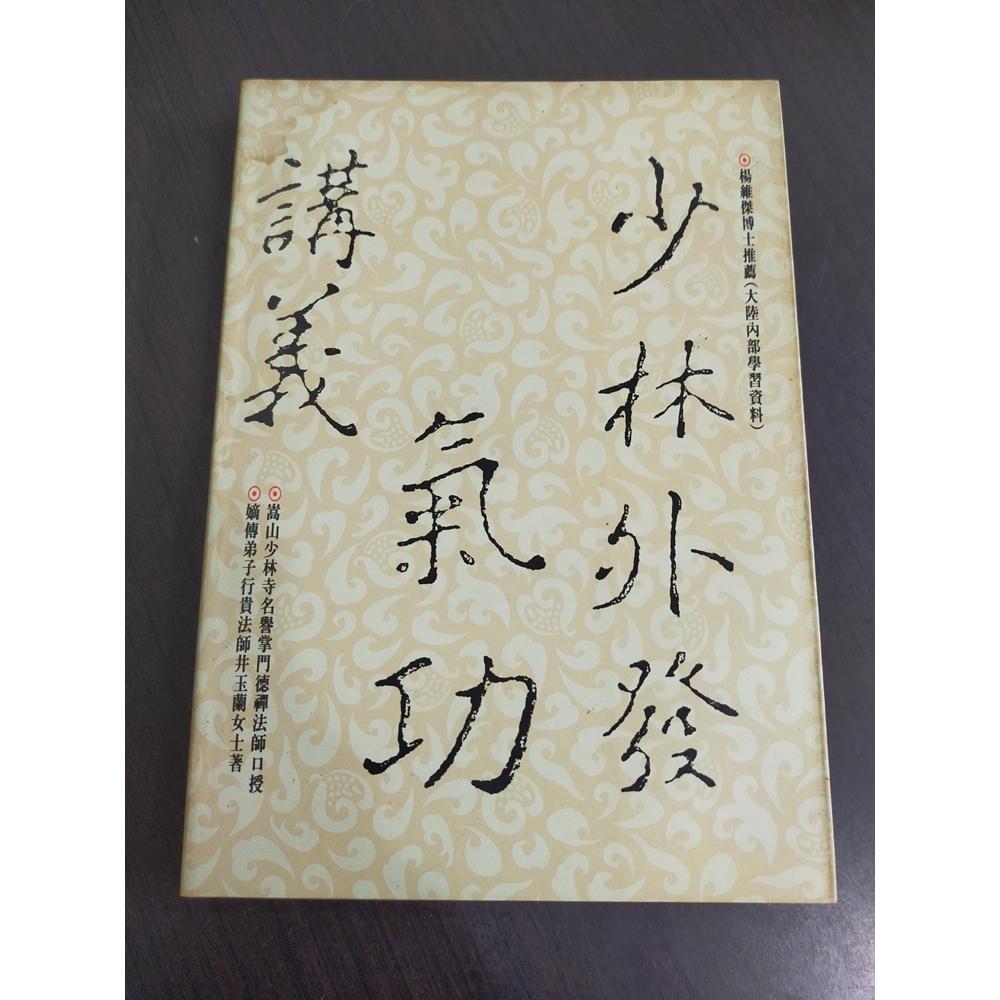 楊維傑博士推薦(大陸內部學習資料)
少林外發
氣功
講義
嵩山少林寺名譽掌門德禪法師口授
嫡傳弟子行貴法師井玉蘭女士著